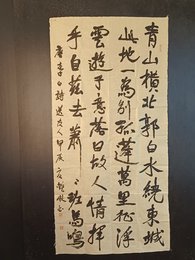 青山橫北郭白水繞東城
此地一為別孤蓬萬里征浮
雲遊子意落日故人情揮
手自茲去蕭々班馬鳴
唐李白詩送友人甲辰夏